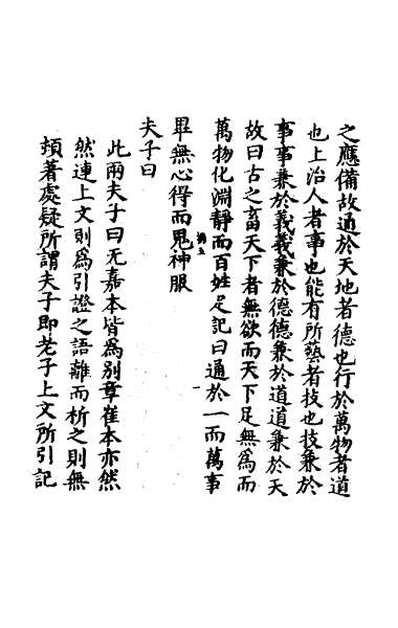 之應備故通於天地者德也行於萬物者道
也上治人者事也能有所藝者技也技兼於
事事兼於義義兼於德德兼於道道兼於天
故曰古之畜天下者無欲而天下足無為而
萬物化淵靜而百姓足記曰通於一而萬事
畢無心得而鬼神服
夫子曰
此兩夫子曰无嘉本皆為別章崔本亦然
然連上文則為引證之語離而析之則無
頰著處疑所謂夫子即老子上文所引記